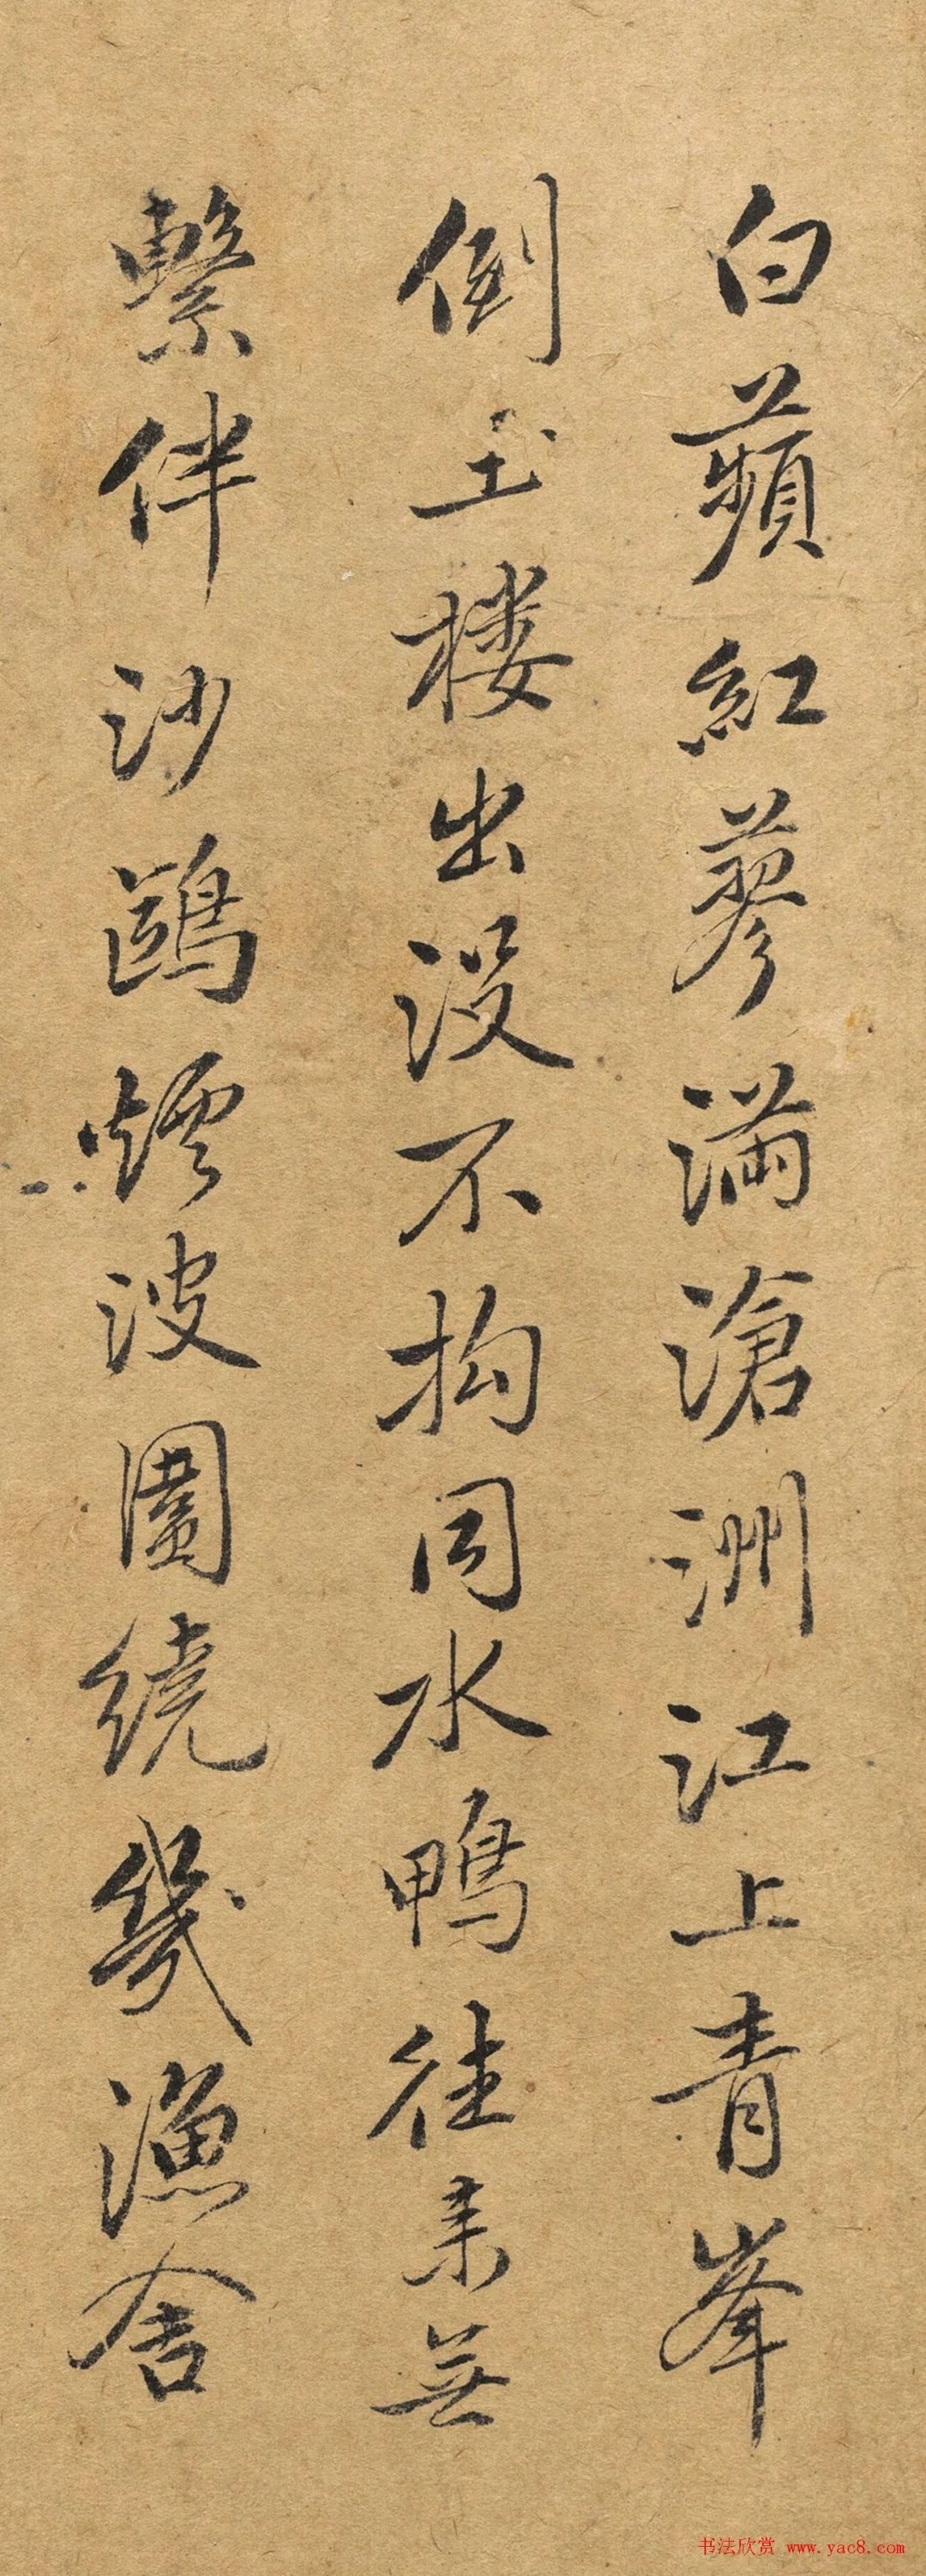 白蘋紅蓼滿滄洲江上青峯
倒玉楼出没不拘同水鴨往来無
繫伴沙鷗煙波圍繞幾漁舍
书法欣赏 www.yac8.com